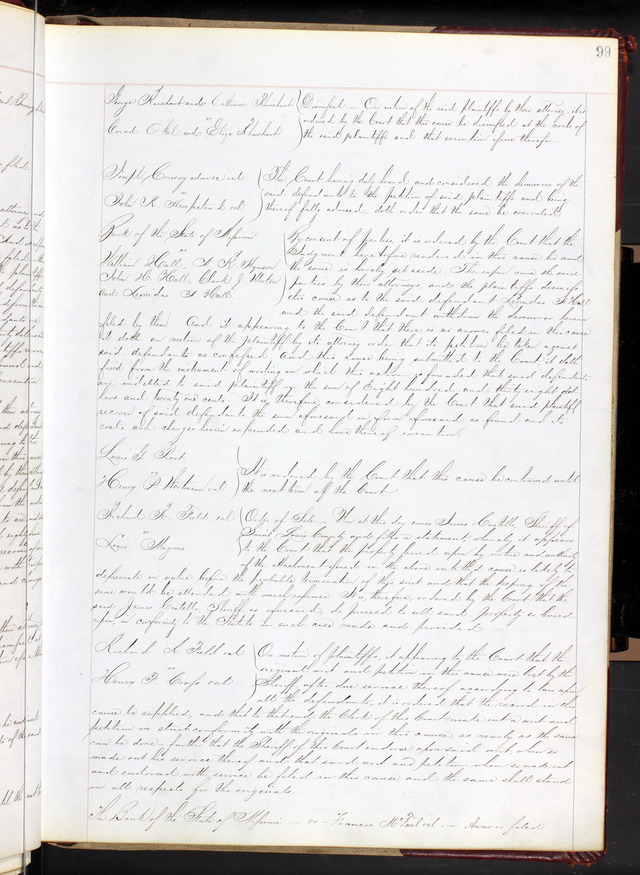 99
George Rinehart and Catherine Rinehart Dismissed — On motion of the said plaintiffs by their attorney it is
ordered by the Court that this cause be dismissed at the costs of
and Eliza Rinehart the said plaintiffs and that execution issue therefor.
Joseph Conway et al The Court having duly heard and considered the demurrer of the
said defendants to the petition of said plaintiffs and being
John R. Hampstead et al thereof fully advised, doth order that the same be overruled.
Bank of the State of Missouri By consent of parties it is ordered by the Court that the
vs Judgment heretofore rendered in this cause be and
William Hall, the same is hereby set aside. Thereupon come the said
John H. Hall, Clark J. parties by their attorneys and the plaintiffs dismiss
and Leonidas S. Hall this cause as to the said defendant Leonidas S. Hall
and the said defendant withdraw the demurrer herein
filed by them. And it appearing to the Court that there is no answer filed in this cause
it doth on motion of the plaintiff by its attorney order that its petition be taken against
said defendants as confessed. And this cause being submitted to the Court it doth
find from the instrument of writing on which this action is founded that said defendants
are indebted to said plaintiff in the sum of Eight hundred and thirty eight dol
lars and twenty one cents. It is therefore considered by the Court that said plaintiff
recover of said defendants the sum aforesaid in form aforesaid so found and its
costs and charges herein expended and have thereof execution.
Louis G.
vs It is ordered by the Court that this cause be continued until
Henry et al the next term of the Court
Richard K. Field et al Order of Sale — Now at this day comes James Castello Sheriff of
vs Saint Louis County and files a statement whereby it appears
Louis Magnus to the Court that the property seized upon by virtue and authority
of the Attachment issued in the above entitled cause is likely to
depreciate in value before the probable termination of this suit and that the keeping of the
same would be attended with much expense. It is therefore ordered by the Court that the
said James Castello Sheriff as aforesaid do proceed to sell said property so levied
upon in conformity to the Statute in such case made and provided
Richard K. Field et al On motion of plaintiffs it appearing to the Court that the
vs original writ and petition in this cause were lost by the
Henry F. Cross et al Sheriff after due service thereof according to law upon
all the defendants, it is ordered that the record in this
cause be supplied and that to that end the Clerk of this Court make out a writ and
petition in strict conformity with the originals in this cause as nearly as the same
can be done, further that the Sheriff of this Court endorse upon said writ when so
made out his service thereof and that said writ and petition when so made out
and endorsed with service be filed in this cause and the same shall stand
in all respects for the originals
The Bank of the State of Missouri — vs — Francis et al — Answer filed